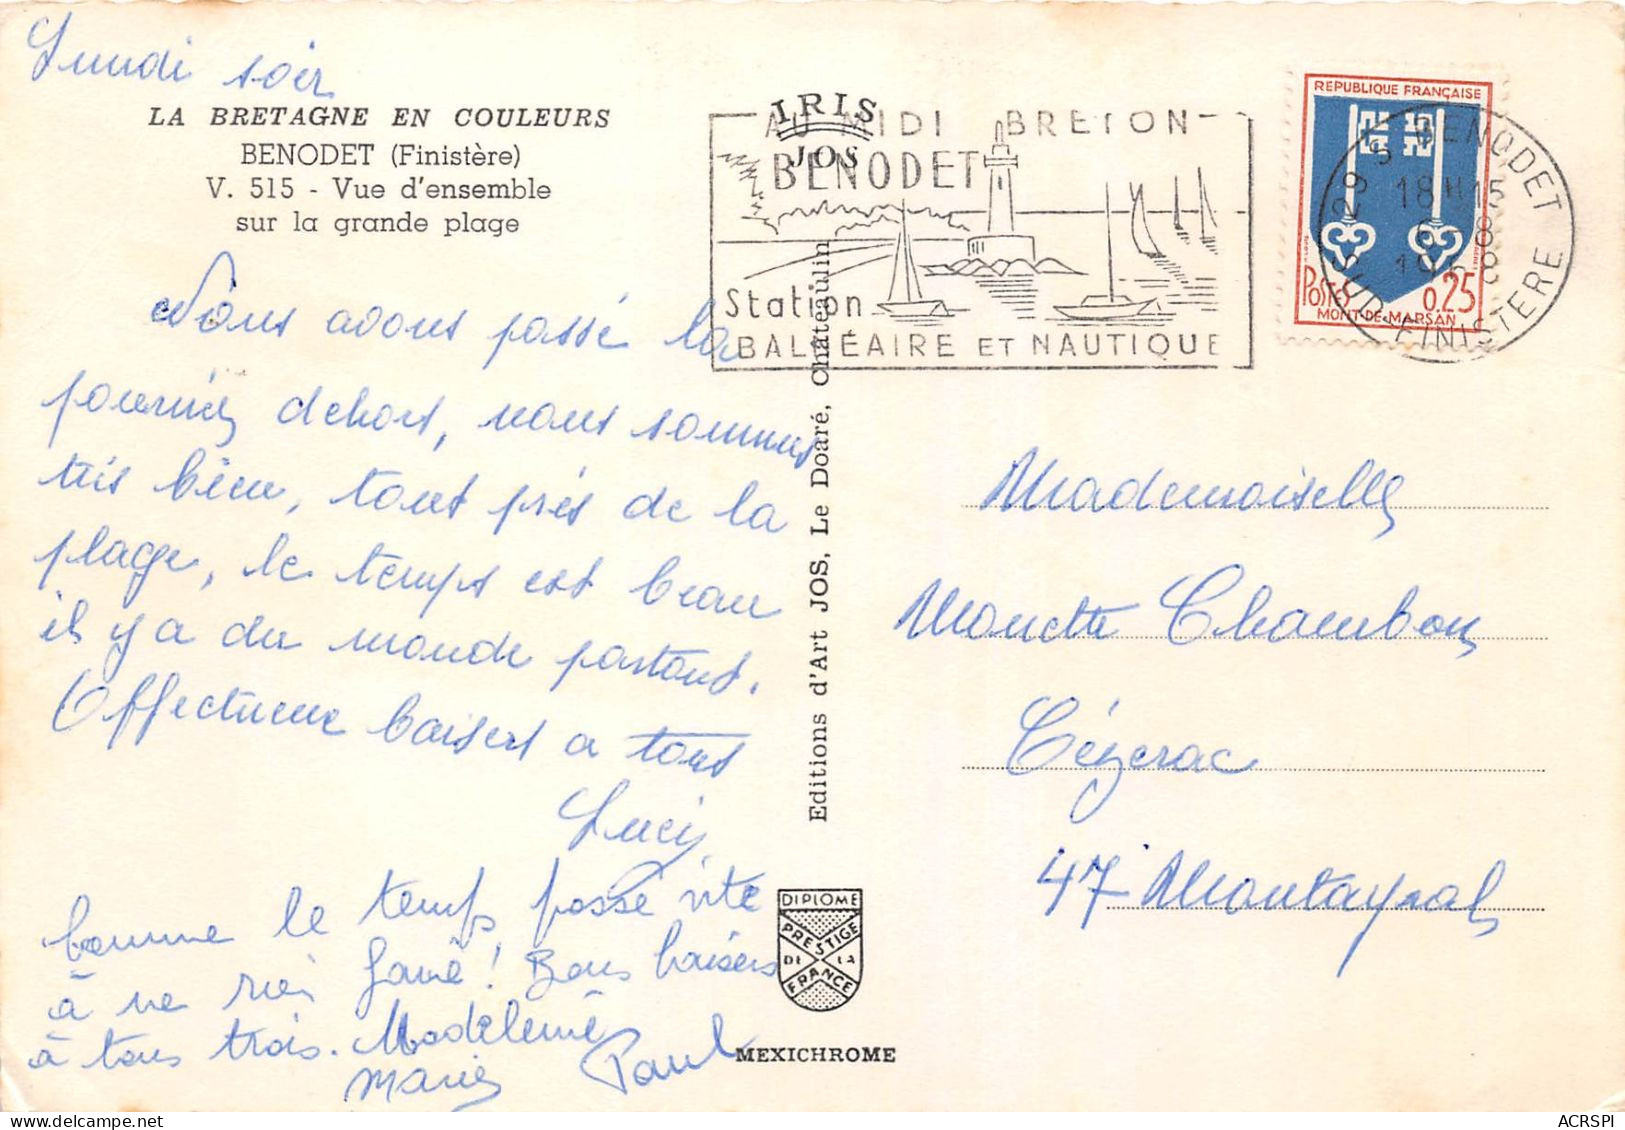 Lundi soir
LA BRETAGNE EN COULEURS
BENODET (Finistère)
V. 515 - Vue d'ensemble
sur la grande plage
Nous avons passé la
journée dehors, nous sommes
très bien, tout près de la
plage, le temps est beau
il y a du monde partout.
Affectueux baisers a tous
Lucy
comme le temps passe vite
à ne rien faire! Bons baisers
à tous trois. Madeleine
Marie Paul
IRIS
JOS
Editions d'Art JOS, Le Doaré, Châteaulin
DIPLOME
PRESTIGE
DE LA
FRANCE
MEXICHROME
AU MIDI BRETON
BENODET
Station
BALNÉAIRE ET NAUTIQUE
REPUBLIQUE FRANÇAISE
POSTES 0,25
MONT-DE-MARSAN
29 S BENODET
18H15
8
1968
SUD-FINISTERE
Mademoiselle
Monette Chambon
Cézerac
47 Montayral
ACRSPI